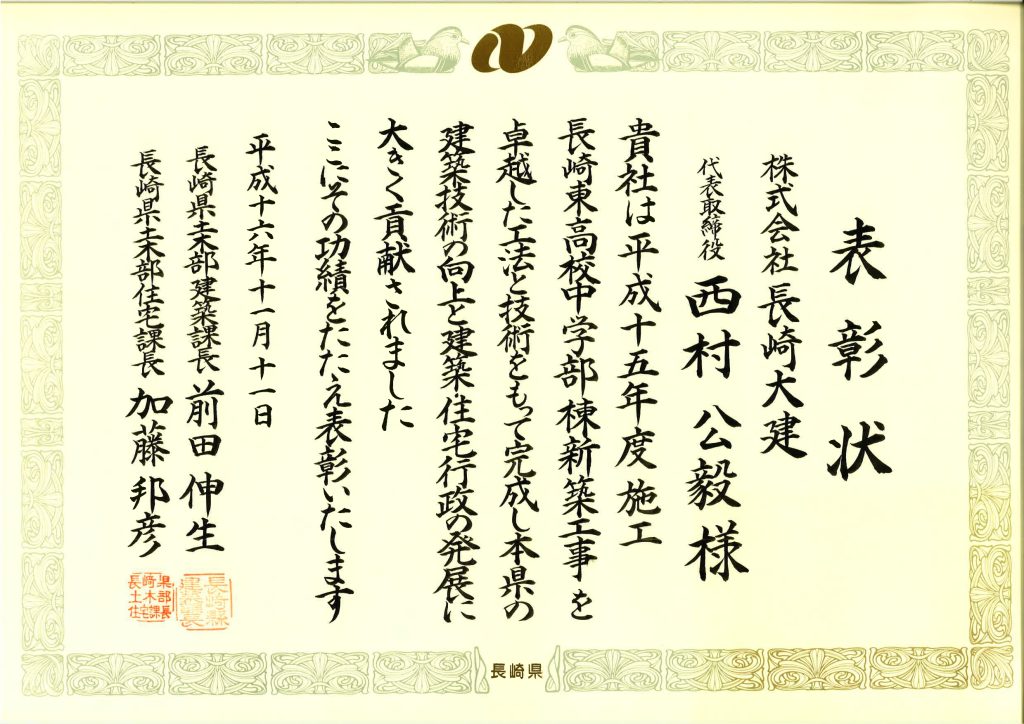 表彰状
株式会社長崎大建
代表取締役 西村公毅様
貴社は平成十五年度施工
長崎東高校中学部棟新築工事を
卓越した工法と技術をもって完成し本県の
建築技術の向上と建築・住宅行政の発展に
大きく貢献されました
ここにその功績をたたえ表彰いたします
平成十六年十一月十一日
長崎県土木部建築課長 前田伸生
長崎県土木部住宅課長 加藤邦彦
長崎県土木部住宅課長
長崎県